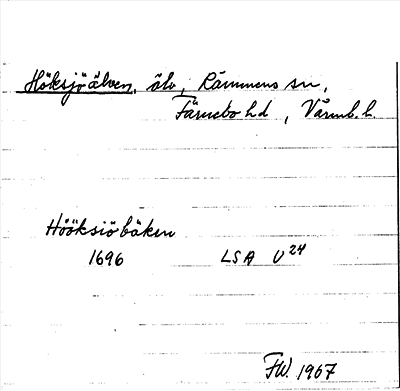 Höksjöälven, älv, Rämmens sn,
Färnebo hd, Värml. l.
Hööksiöbäken
1696 LSA U24
FW. 1967